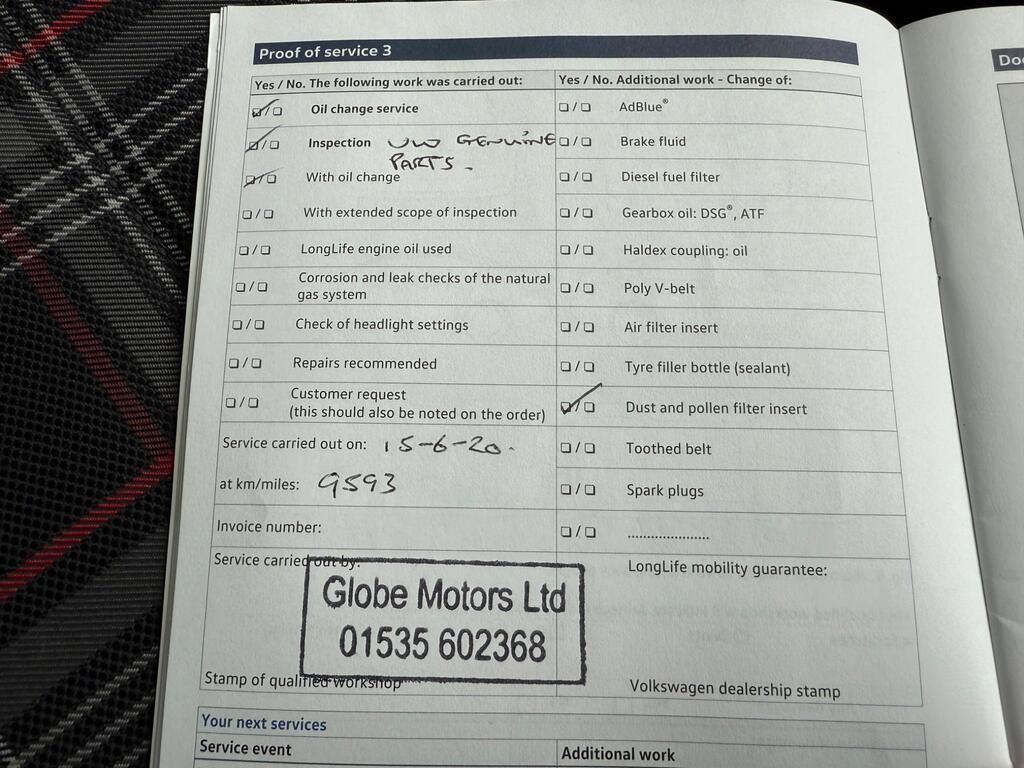 Proof of service 3
Doc
Yes / No. The following work was carried out: Yes / No. Additional work - Change of:
☑/☐ Oil change service ☐/☐ AdBlue®
☑/☐ Inspection VW GENUINE ☐/☐ Brake fluid
PARTS.
☑/☐ With oil change ☐/☐ Diesel fuel filter
☐/☐ With extended scope of inspection ☐/☐ Gearbox oil: DSG®, ATF
☐/☐ LongLife engine oil used ☐/☐ Haldex coupling: oil
☐/☐ Corrosion and leak checks of the natural ☐/☐ Poly V-belt
gas system
☐/☐ Check of headlight settings ☐/☐ Air filter insert
☐/☐ Repairs recommended ☐/☐ Tyre filler bottle (sealant)
☐/☐ Customer request ☑/☐ Dust and pollen filter insert
(this should also be noted on the order)
Service carried out on: 15-6-20. ☐/☐ Toothed belt
at km/miles: 9593 ☐/☐ Spark plugs
Invoice number: ☐/☐ .....................
Service carried out by: LongLife mobility guarantee:
Globe Motors Ltd
01535 602368
Stamp of qualified workshop Volkswagen dealership stamp
Your next services
Service event Additional work